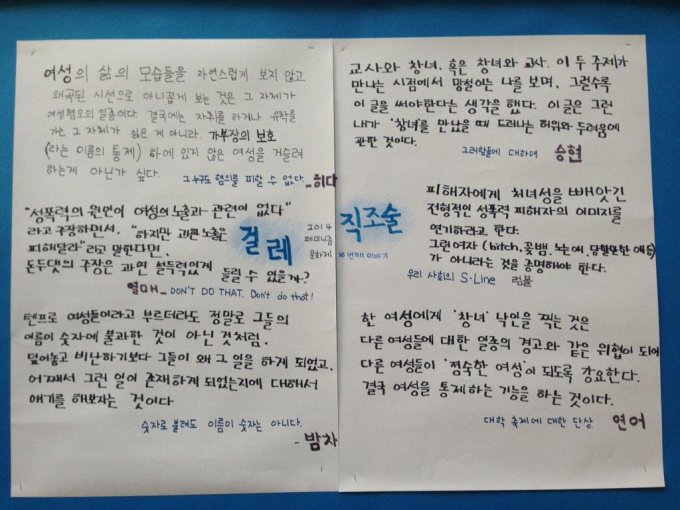 여성의 삶의 모습들을 자연스럽게 보지 않고
왜곡된 시선으로 아니꼽게 보는 것은 그 자체가
여성혐오의 일종이다. 결국에는 자취를 하거나 유학을
가는 그 자체가 싫은 게 아니라. 가부장의 보호
(라는 이름의 통제) 하에 있지 않은 여성을 거슬려
하는게 아닌가 싶다.
그 누구도 혐의를 피할 수 없다. - 히다
"성폭력의 원인이 여성의 노출과 관련이 없다"
라고 주장하면서, "하지만 과한 노출은
피해달라"라고 말한다면,
돈두댓의 주장은 과연 설득력있게 들릴 수 있을까?
열매 - DON'T DO THAT, Don't do that!
텐프로 여성들이라고 부르더라도 정말로 그들의
이름이 숫자에 불과한 것이 아닌 것처럼.
덮어놓고 비난하기보다 그들이 왜 그 일을 하게 되었고,
어째서 그런 일이 존재하게 되었는지에 대해서
얘기를 해보자는 것이다
숫자로 불려도 이름이 숫자는 아니다.
- 밤차
걸레
2014
페미니즘
문화제
직조술
번째 이야기
교사와 창녀, 혹은 창녀와 교사. 이 두 주제가
만나는 시점에서 망설이는 나를 보며, 그럴수록
이 글을 써야한다는 생각을 했다. 이 글은 그런
내가 '창녀'를 만났을 때 드러나는 허위와 두려움에
관한 것이다.
그러함들에 대하여 승현
피해자에게 처녀성을 빼앗긴
전형적인 성폭력 피해자의 이미지를
연기하라고 한다.
그런여자 (bitch, 꽃뱀,
가 아니라는 것을 증명해야 한다.
우리 사회의 S-Line 럼블
한 여성에게 '창녀' 낙인을 찍는 것은
다른 여성들에 대한 일종의 경고와 같은 위협이 되어
다른 여성들이 '정숙한 여성'이 되도록 강요한다.
결국 여성을 통제하는 기능을 하는 것이다.
대학 축제에 대한 단상. 연어